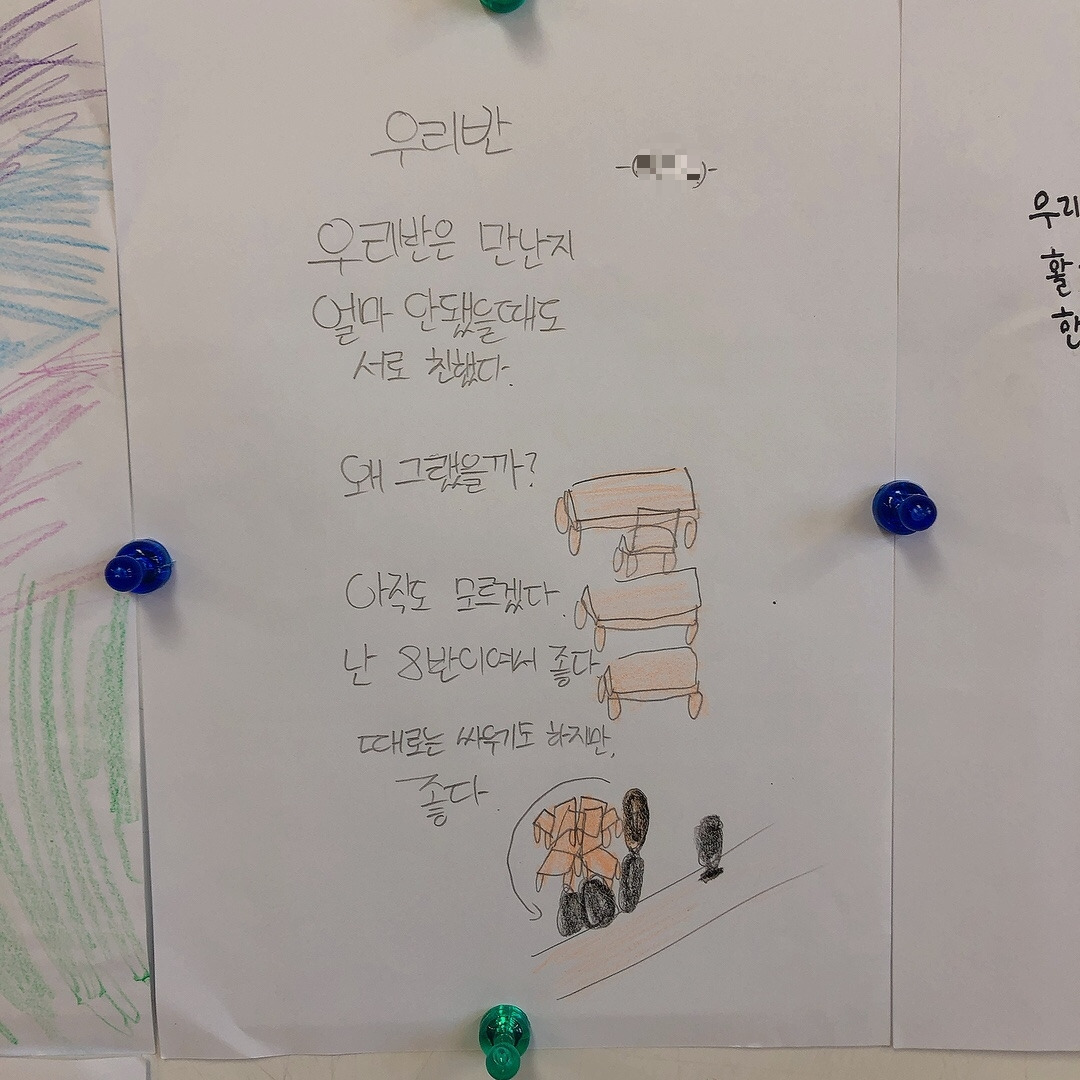 우리반
우리반은 만난지
얼마 안됐을때도
서로 친했다.
왜 그랬을까?
아직도 모르겠다.
난 8반이여서 좋다.
때로는 싸우기도 하지만,
좋다.
우리
활
한